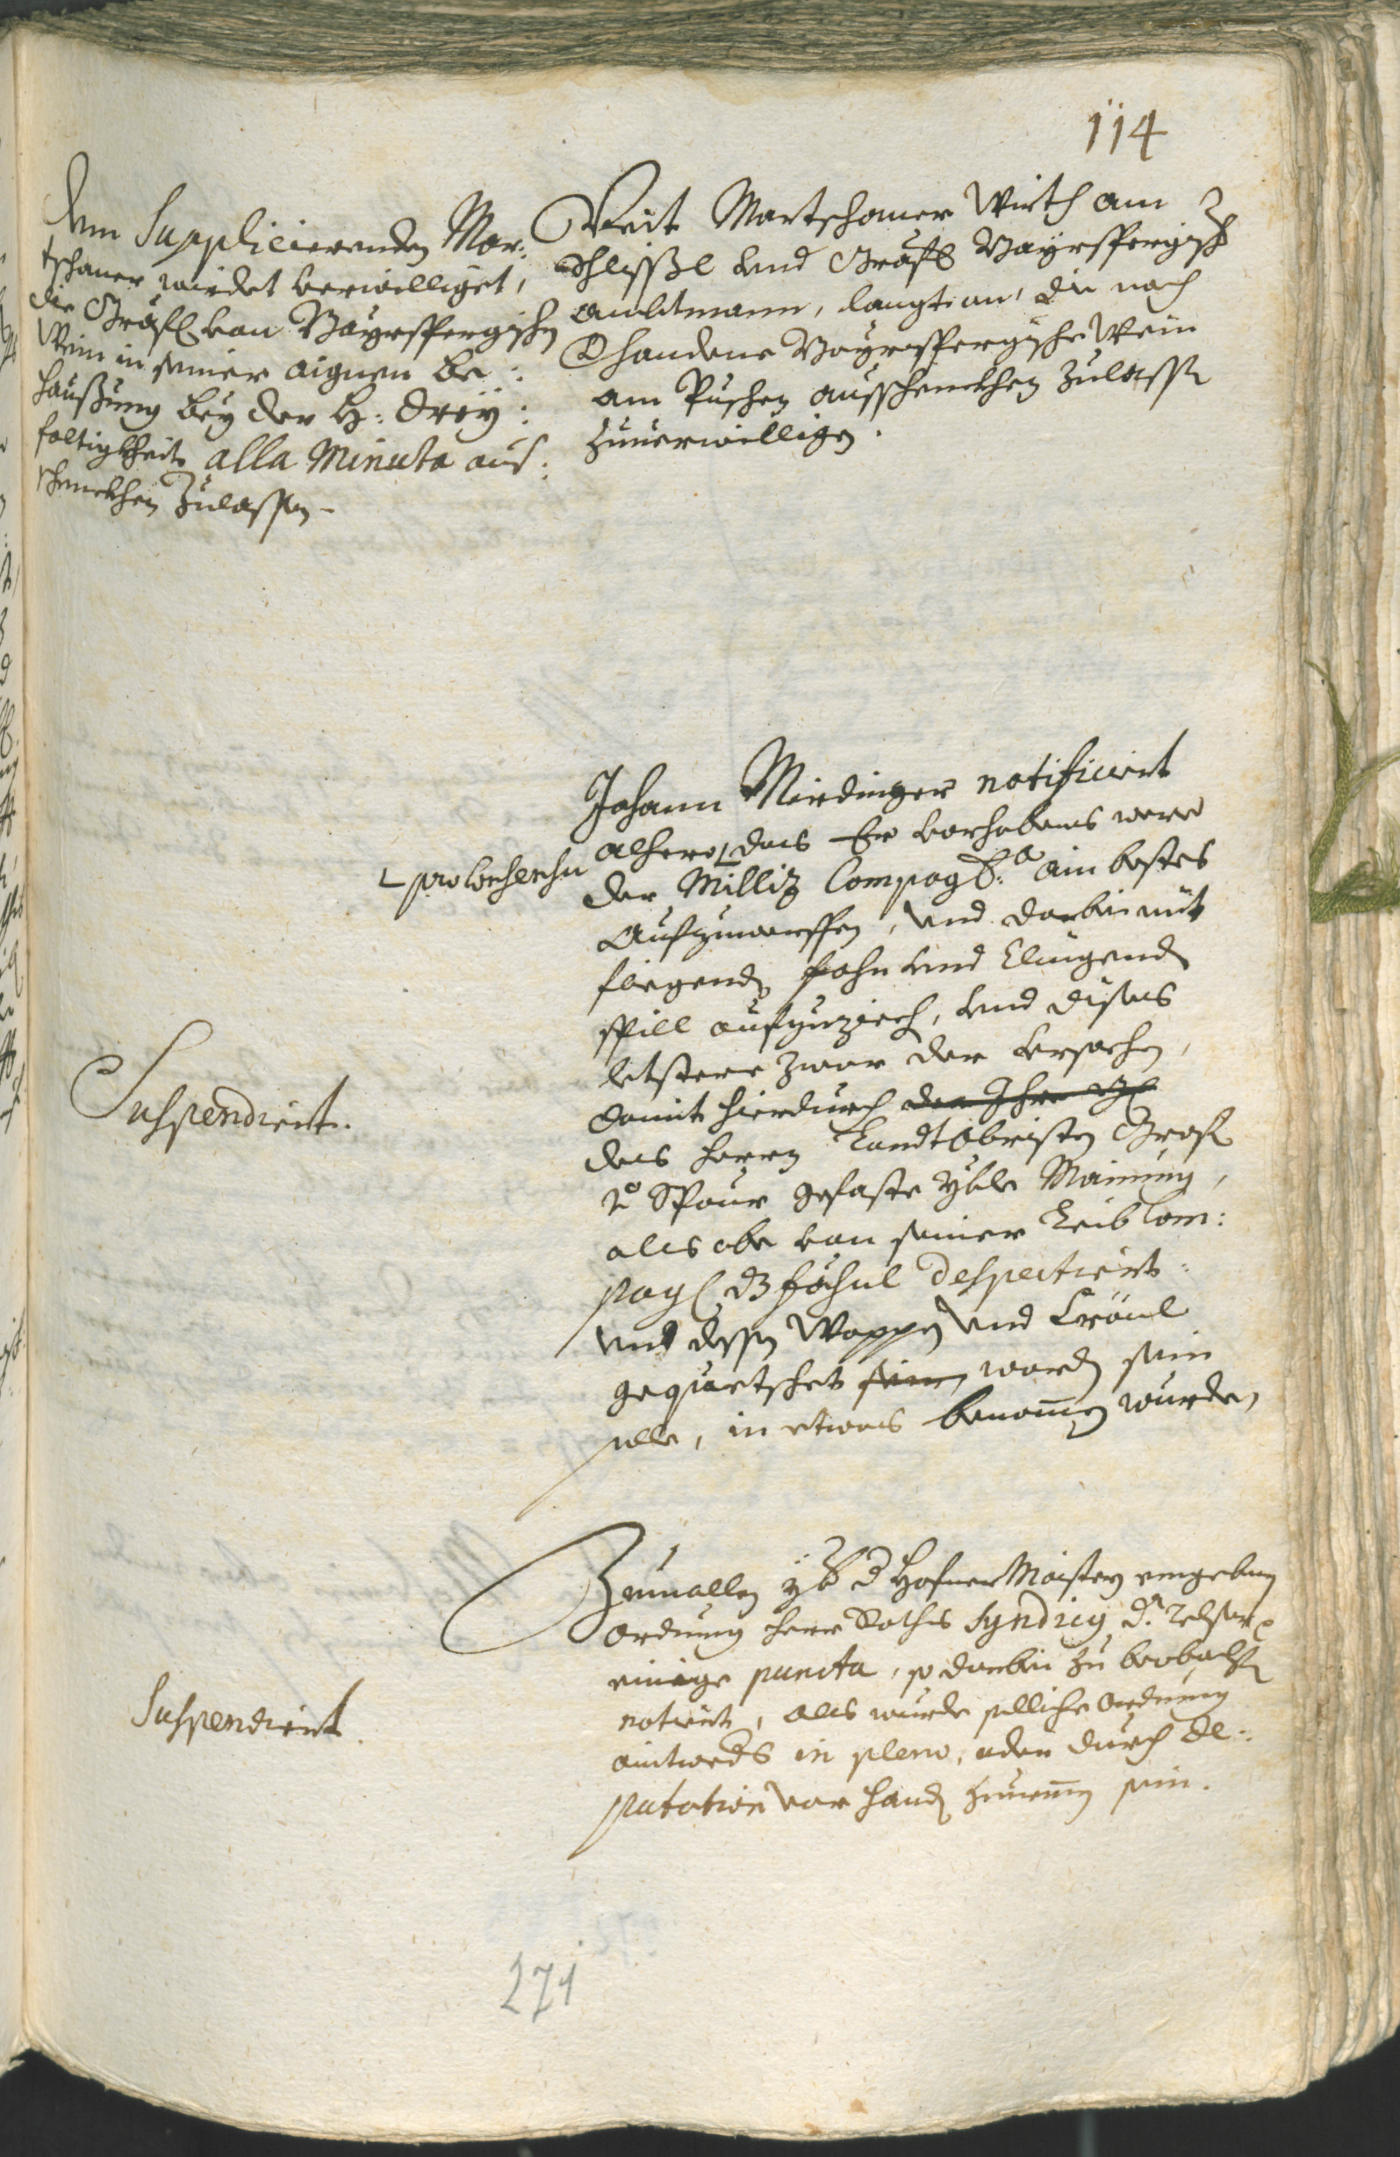 114
Dem Supplicierenden Mar:
tschaner wirdet verwilliget,
die Gräfl: von Mayrspergischen
Wein in seiner aignen Be:
haußung bey der H: Drey:
faltigkheit alla Minuta aus:
schenckhen Zulassen.
Veit Martschaner Wirth am
Schlissl vnd Gräfl: Mayrspergisch
ambtmann, langt an, die noch
Mayrspergische Wein
am Puschen ausschenckhen zulassen
zuuerwilligen.
Johann Miedinger notificiert
alhero, das Er vorhabens were
der Milliz Compag: ain bestes
Aufzuwerffen, vnd darbei mit
fliegenden fahn vnd klingenden
spill aufzuziech, vnd dises
letstere zwar der vrsachen,
damit hierdurch
des herrn Landtobristen Graf
v: Spaur gefaste yble Mainung,
als obe von seiner Leib Com:
pag: dz fähnl despectiert
vnd dessen Wappen vnd Cränl
gequetschet worden sein
solle, in etwas benommen wurde
Suspendiert.
Zumallen yber d Hafner Maistern eingeben
ordnung herr Raths Syndicus
einige puncta, so darbei zu beobachten
notiert, als wurde solliche ordnung
aintweders in pleno, oder durch De:
putation vor handen zunemen sein.
Suspendiert.
271